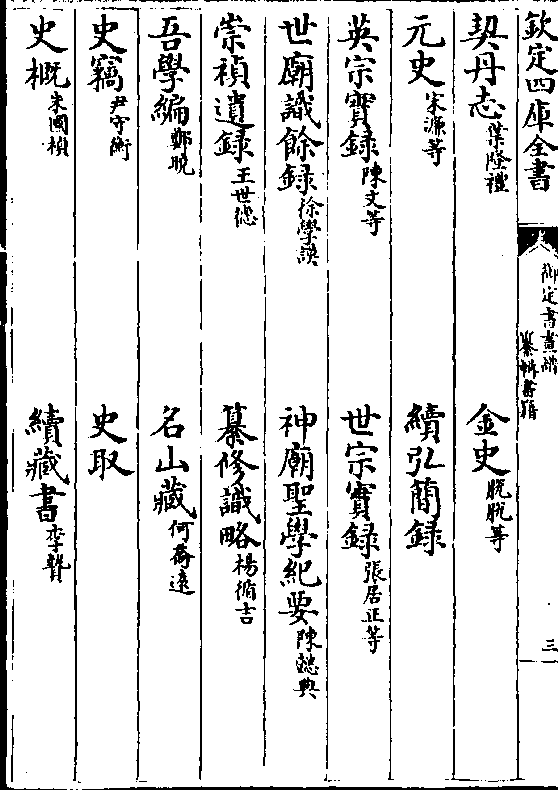 欽定四庫全書
御定書畫譜
纂輯書籍
三
契丹志葉隆禮 金史脫脫等
元史宋濂等 續弘簡録
英宗實録陳文等 世宗實録張居正等
世廟識餘録徐學謨 神廟聖學紀要陳懿典
崇禎遺録王世德 纂修識略楊循吉
吾學編鄭曉 名山藏何喬遠
史竊尹守衡 史取
史概朱國禎 續藏書李贄